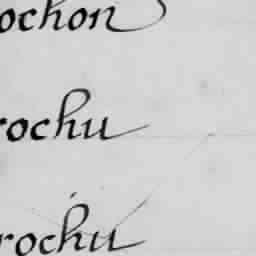 ochon
rochu
rochu